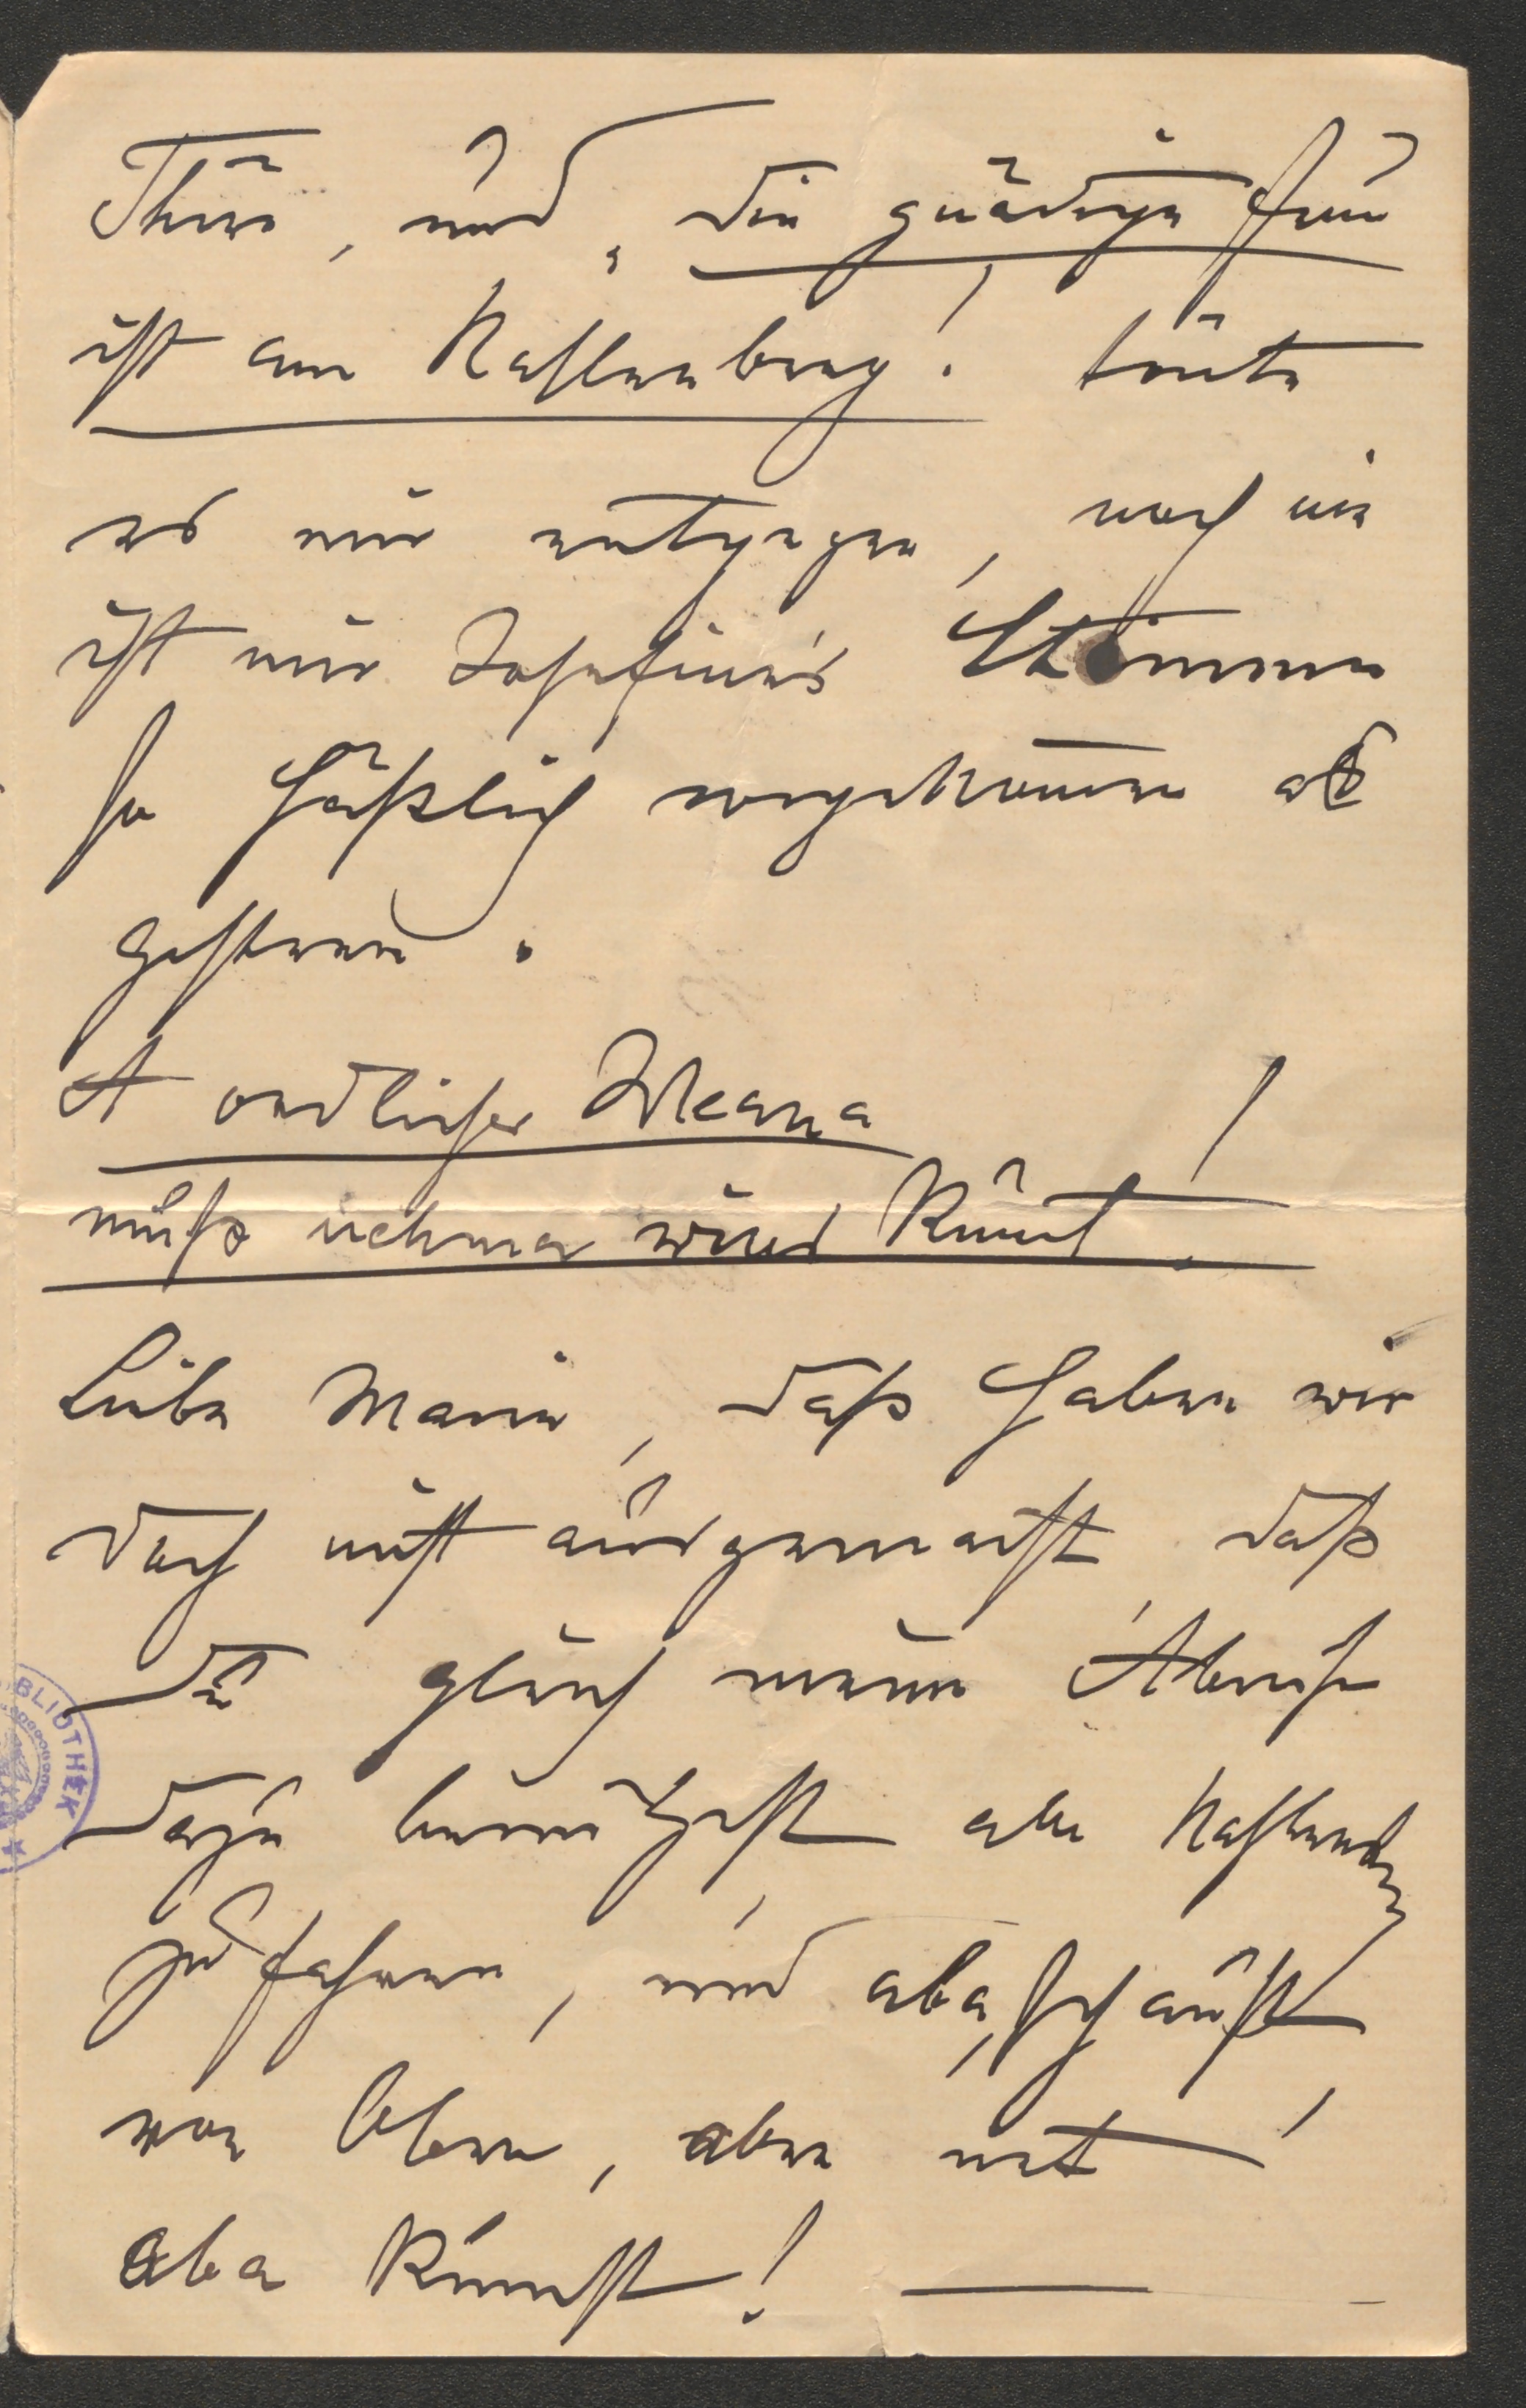 Thüre, und „die gnädige Frau
ist am Kahlenberg! tönte
es mir entgegen, noch nie
ist mir Josefine's Stimme
so häßlich vorgekommen als
gestern.
A ordlicher Weana
muß nehma wias kimt!
Liebe Marie, daß haben wir
doch nicht ausgemacht, daß
Du gleich meine Abreise
dazu benützest am Kahlenberg
zu fahren, und abaschaust
von Oben, aber net
aba kimst! —
BLIOTHEK